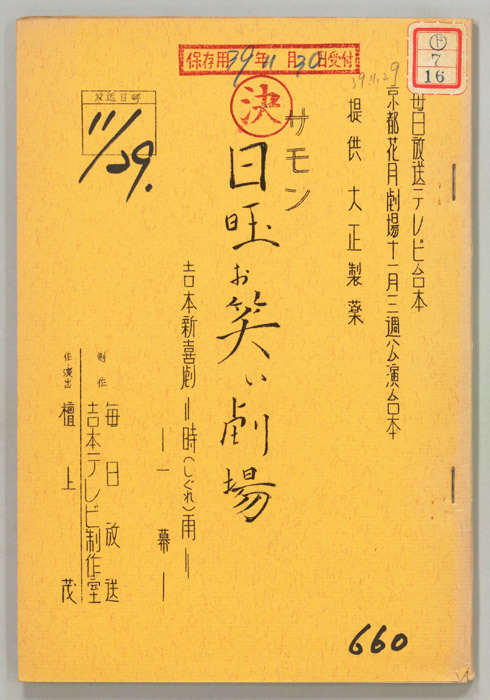 毎日放送テレビ台本
京都花月劇場十一月三週公演台本
提供 大正製薬
サモン
日曜お笑い劇場
吉本新喜劇〃時(しぐれ)雨〃
―一幕―
制作 毎日放送
吉本テレビ制作室
作・演出 檀上茂
放送日時
11/29.
保存用39年11月30日受付
決
39.11.29
ト
7
16
660